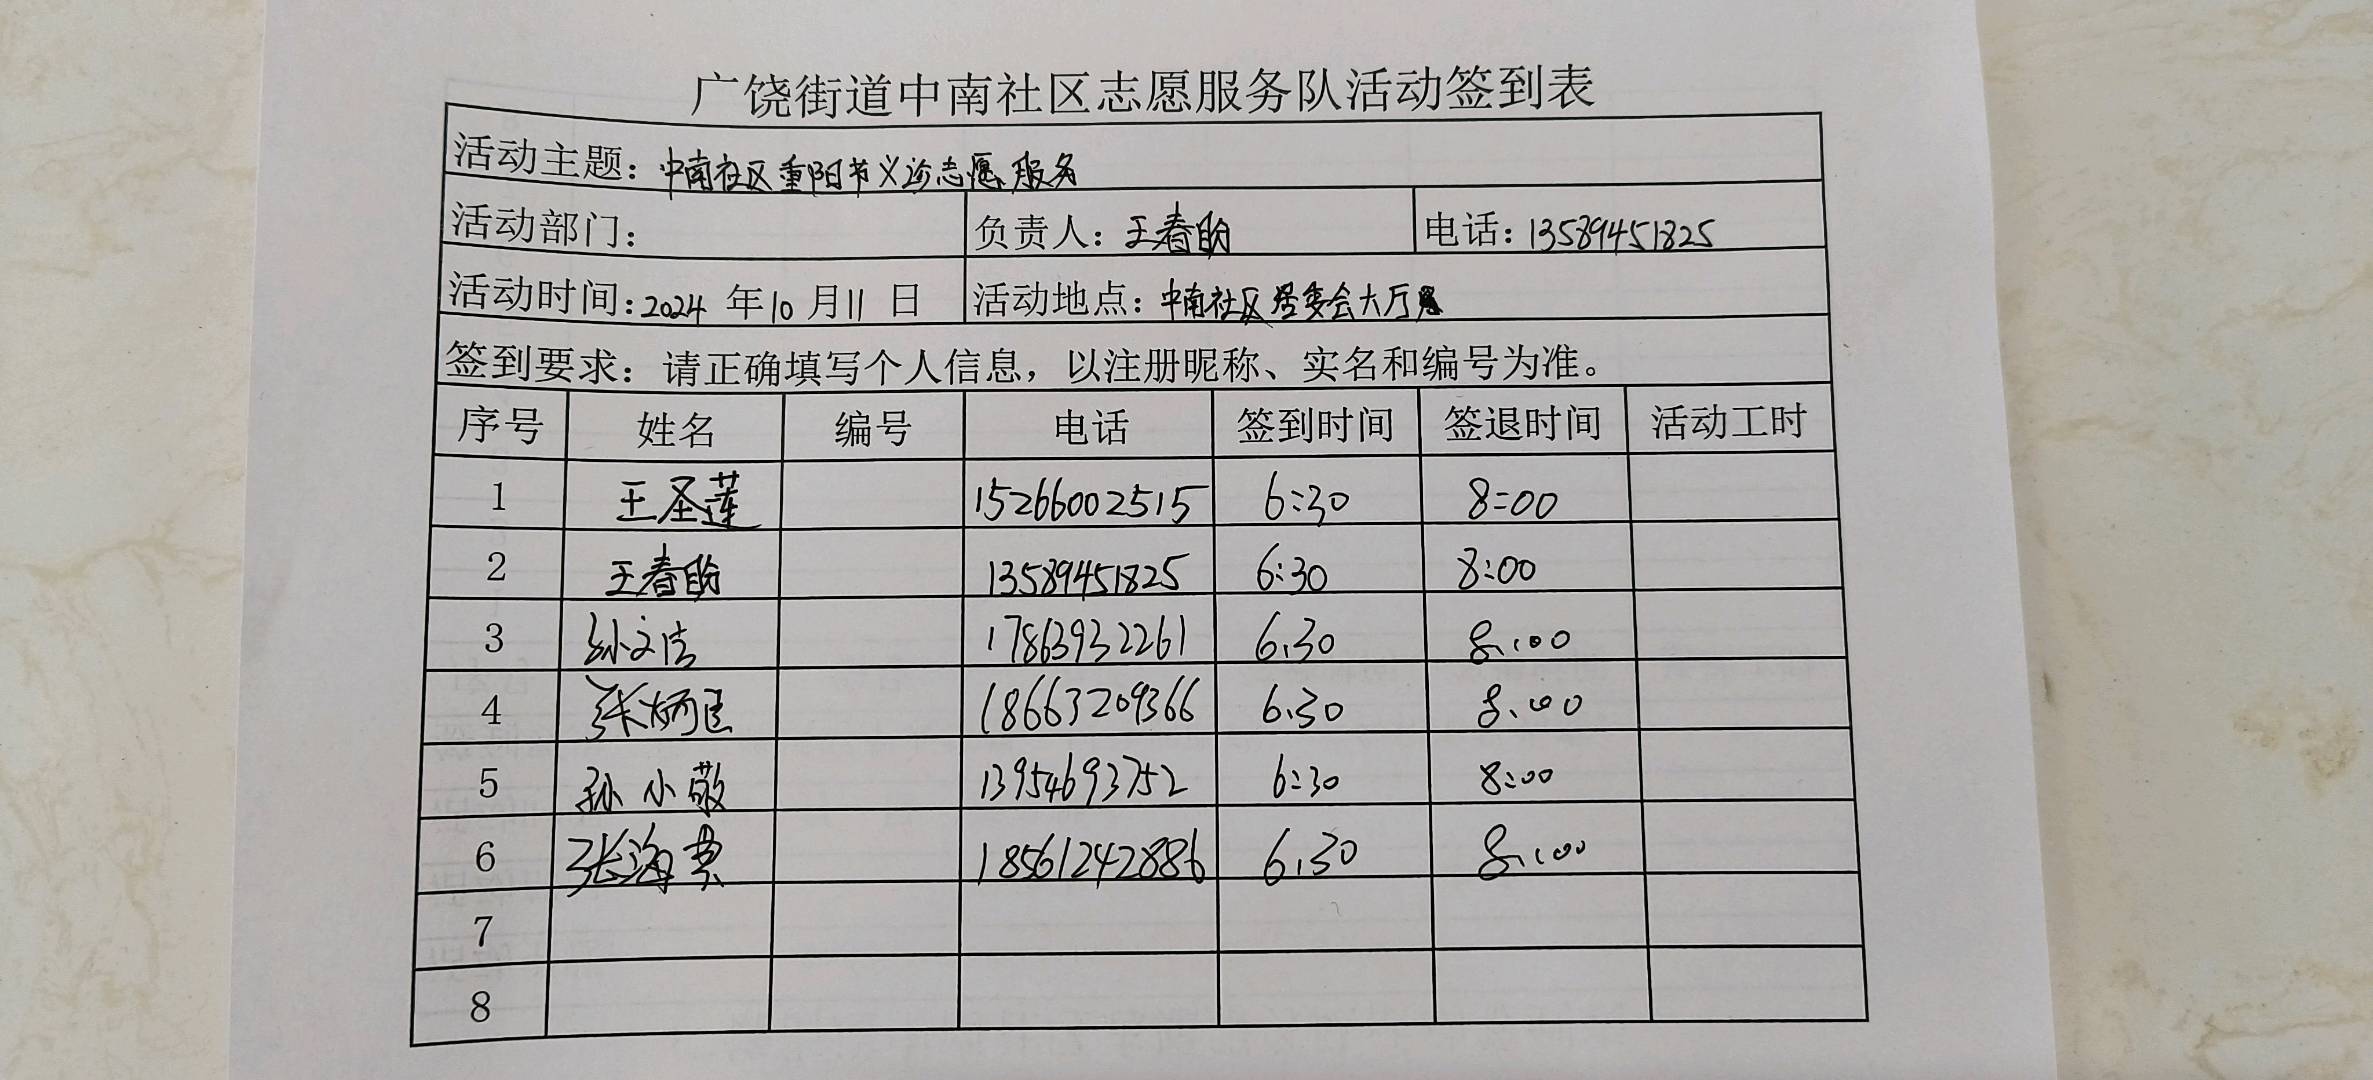 广饶街道中南社区志愿服务队活动签到表
活动主题：中南社区重阳节义诊志愿服务
活动部门： 负责人：王春盼 电话：13589451825
活动时间：2024 年 10 月 11 日 活动地点：中南社区居委会大厅
签到要求：请正确填写个人信息，以注册昵称、实名和编号为准。
序号 姓名 编号 电话 签到时间 签退时间 活动工时
1 王圣莲 15266002515 6:30 8:00
2 王春盼 13589451825 6:30 8:00
3 孙文洁 17863932261 6:30 8:00
4 张炳臣 18663209366 6:30 8:00
5 孙小敬 13954693752 6:30 8:00
6 张海 18561242886 6:30 8:00
7
8